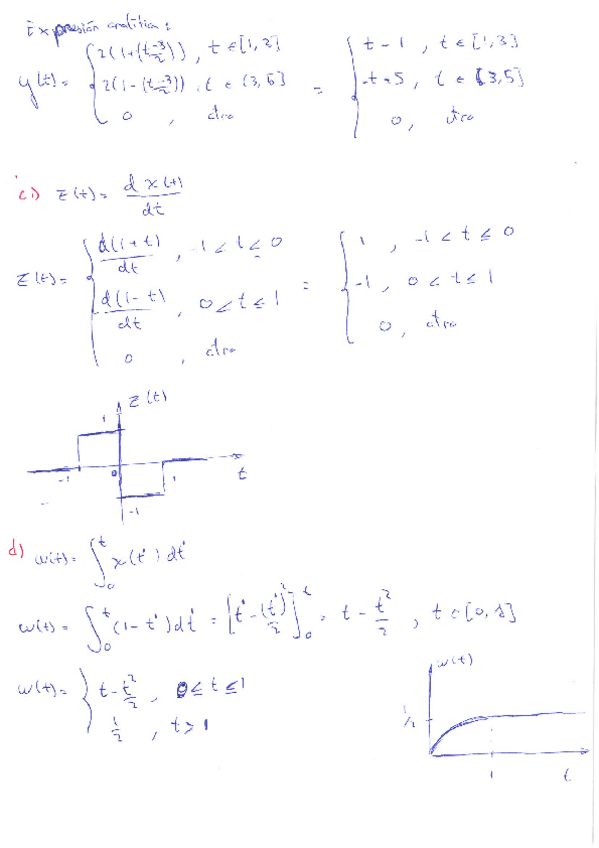 Expresión analítica:
y(t) = { 2(1+(t-3)/2)), t ∈ [1,3] = { t-1, t ∈ [1,3]
2(1-(t-3)/2)), t ∈ (3,5] -t+5, t ∈ (3,5]
0, otro 0, otro
c) z(t) = d x(t)/dt
z(t) = { d(1+t)/dt, -1 < t ≤ 0 = { 1, -1 < t ≤ 0
d(1-t)/dt, 0 < t ≤ 1 -1, 0 < t ≤ 1
0, otro 0, otro
z(t)
1
-1 0 1 t
-1
d) w(t) = ∫₀ᵗ x(t') dt'
w(t) = ∫₀ᵗ (1-t') dt' = [t' - (t')²/2]₀ᵗ = t - t²/2, t ∈ [0,1]
w(t) = { t - t²/2, 0 ≤ t ≤ 1
1/2, t > 1
w(t)
1/2
1 t